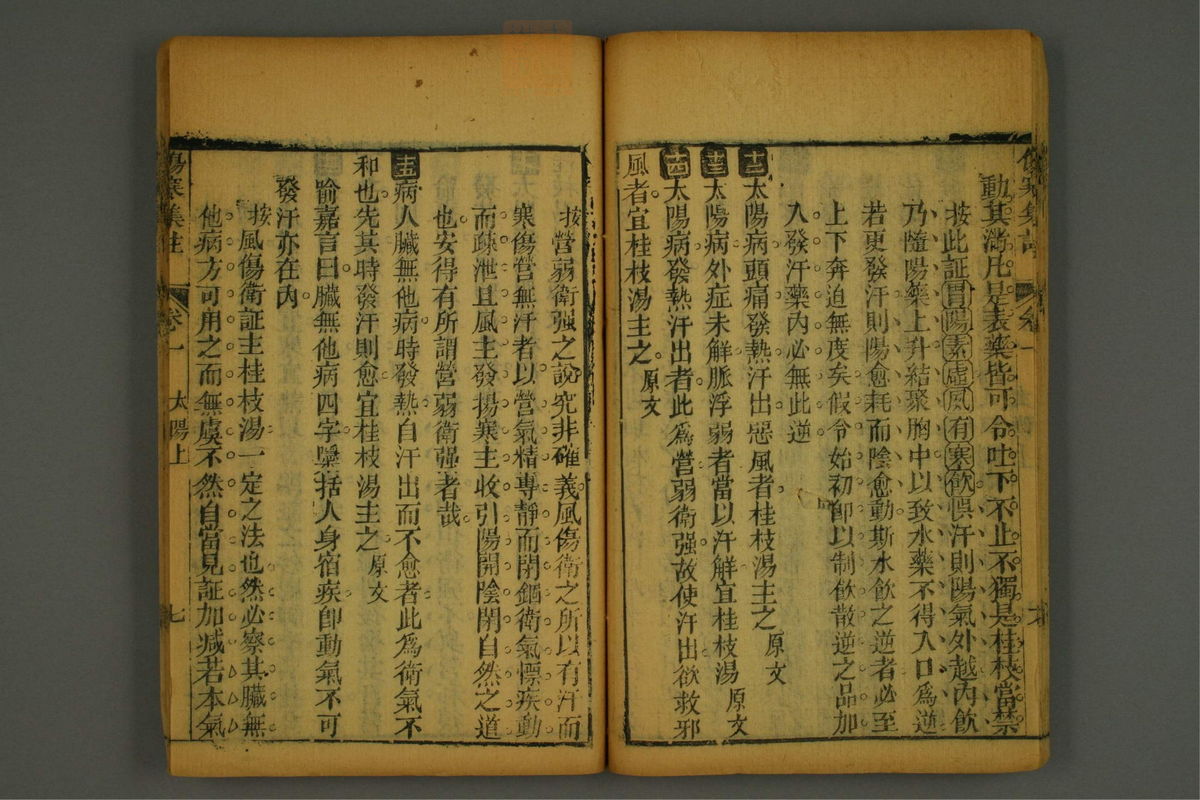 動其滿凡是表藥皆可令吐下不止不獨是桂枝當禁
按此証胃陽素虛夙有寒飲悞汗則陽氣外越內飲
乃隨陽藥上升結聚胸中以致水藥不得入口爲逆
若更發汗則陽愈耗而陰愈動斯水飲之逆者必至
上下奔迫無度矣假令始初卽以制飲散逆之品加
入發汗藥內必無此逆
十二太陽病頭痛發熱汗出惡風者桂枝湯主之原文
十三太陽病外症未解脈浮弱者當以汗解宜桂枝湯原文
十四太陽病發熱汗出者此爲營弱衛强故使汗出欲救邪
風者宜桂枝湯主之原文
按營弱衛强之說究非確義風傷衛之所以有汗而
寒傷營無汗者以營氣精專靜而閉錮衛氣慓疾動
而疎泄且風主發揚寒主收引陽開陰閉自然之道
也安得有所謂營弱衛强者哉
十五病人臟無他病時發熱自汗出而不愈者此爲衛氣不
和也先其時發汗則愈宜桂枝湯主之原文
喻嘉言曰臟無他病四字櫽括人身宿疾卽動氣不可
發汗亦在內
按風傷衛証主桂枝湯一定之法也然必察其臟無
他病方可用之而無虞不然自當見証加減若本氣
傷寒集註 卷一 太陽上 七